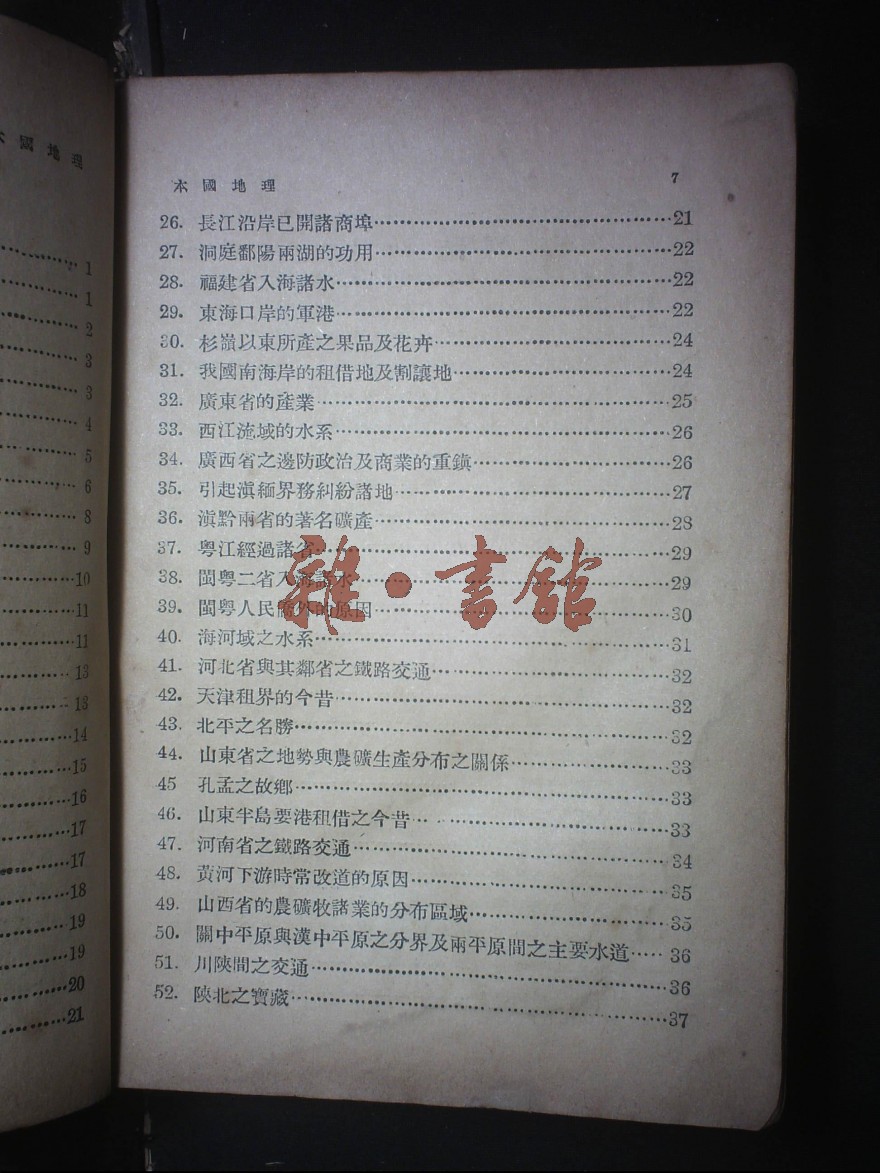 本國地理
1
1
2
3
3
4
5
6
8
9
10
11
11
13
13
14
15
16
17
17
18
19
19
20
21
本國地理 7
26. 長江沿岸已開諸商埠……21
27. 洞庭鄱陽兩湖的功用……22
28. 福建省入海諸水……22
29. 東海口岸的軍港……22
30. 杉嶺以東所產之果品及花卉……24
31. 我國南海岸的租借地及割讓地……24
32. 廣東省的產業……25
33. 西江流域的水系……26
34. 廣西省之邊防政治及商業的重鎮……26
35. 引起滇緬界務糾紛諸地……27
36. 滇黔兩省的著名礦產……28
37. 粤江經過諸省……29
38. 閩粤二省入海諸水……29
39. 閩粤人民僑外的原因……30
40. 海河域之水系……31
41. 河北省與其鄰省之鐵路交通……32
42. 天津租界的今昔……32
43. 北平之名勝……32
44. 山東省之地勢與農礦生產分布之關係……33
45 孔孟之故鄉……33
46. 山東半島要港租借之今昔……33
47. 河南省之鐵路交通……34
48. 黃河下游時常改道的原因……35
49. 山西省的農礦牧諸業的分布區域……35
50. 關中平原與漢中平原之分界及兩平原間之主要水道……36
51. 川陝間之交通……36
52. 陝北之寶藏……37
雜·書館